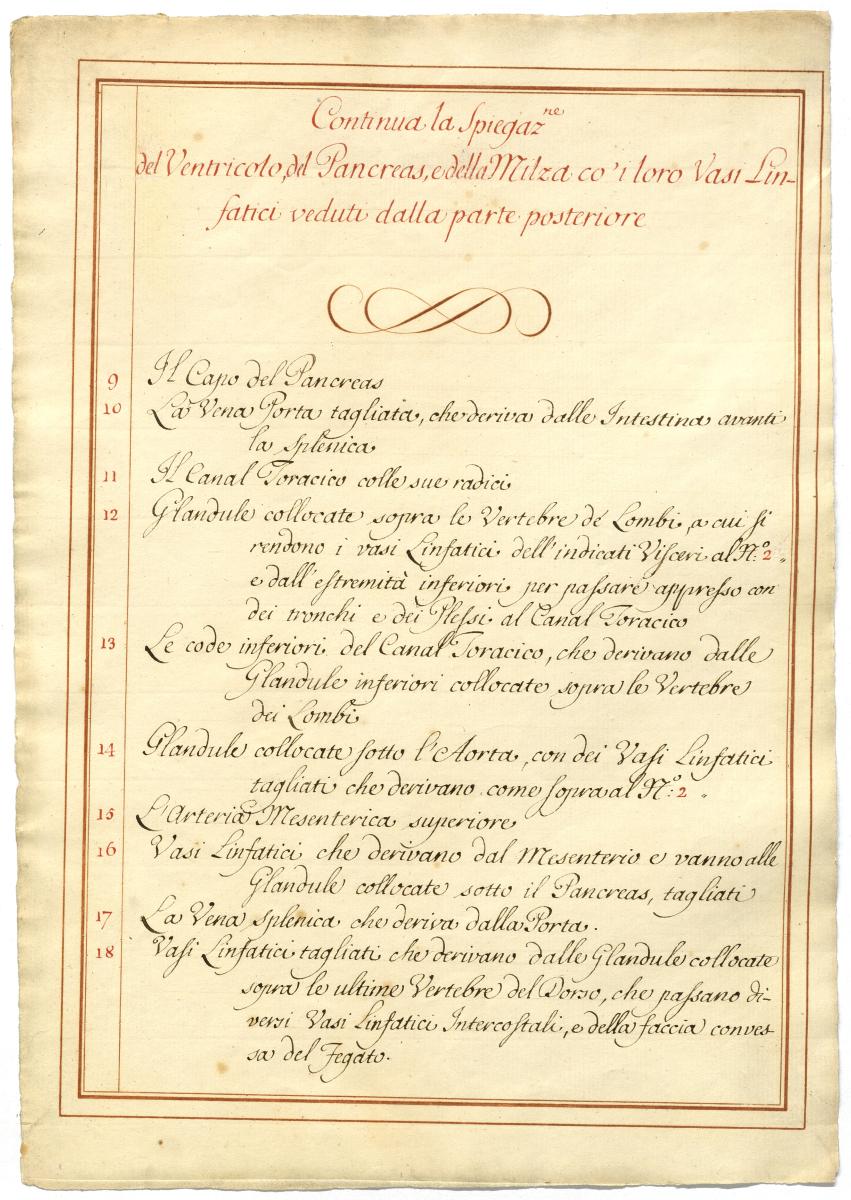 Continua la Spiegaz.ne
del Ventricolo, del Pancreas, e della Milza co'i loro Vasi Lin-
fatici veduti dalla parte posteriore
9 Il Capo del Pancreas
10 La Vena Porta tagliata, che deriva dalle Intestina avanti
la splenica
11 Il Canal Toracico colle sue radici
12 Glandule collocate sopra le Vertebre de' Lombi, a cui si
rendono i vasi Linfatici dell'indicati Visceri al N.o 2 „
e dall'estremità inferiori per passare appresso con
dei tronchi e dei Plessi al Canal Toracico
13 Le code inferiori del Canal Toracico, che derivano dalle
Glandule inferiori collocate sopra le Vertebre
dei Lombi
14 Glandule collocate sotto l'Aorta, con dei Vasi Linfatici
tagliati che derivano come sopra al N.o: 2 „
15 L'Arteria Mesenterica superiore
16 Vasi Linfatici che derivano dal Mesenterio e vanno alle
Glandule collocate sotto il Pancreas, tagliati
17 La Vena splenica che deriva dalla Porta.
18 Vasi Linfatici tagliati che derivano dalle Glandule collocate
sopra le ultime Vertebre del Dorso, che passano di-
versi Vasi Linfatici Intercostali, e della faccia conves-
sa del Fegato.